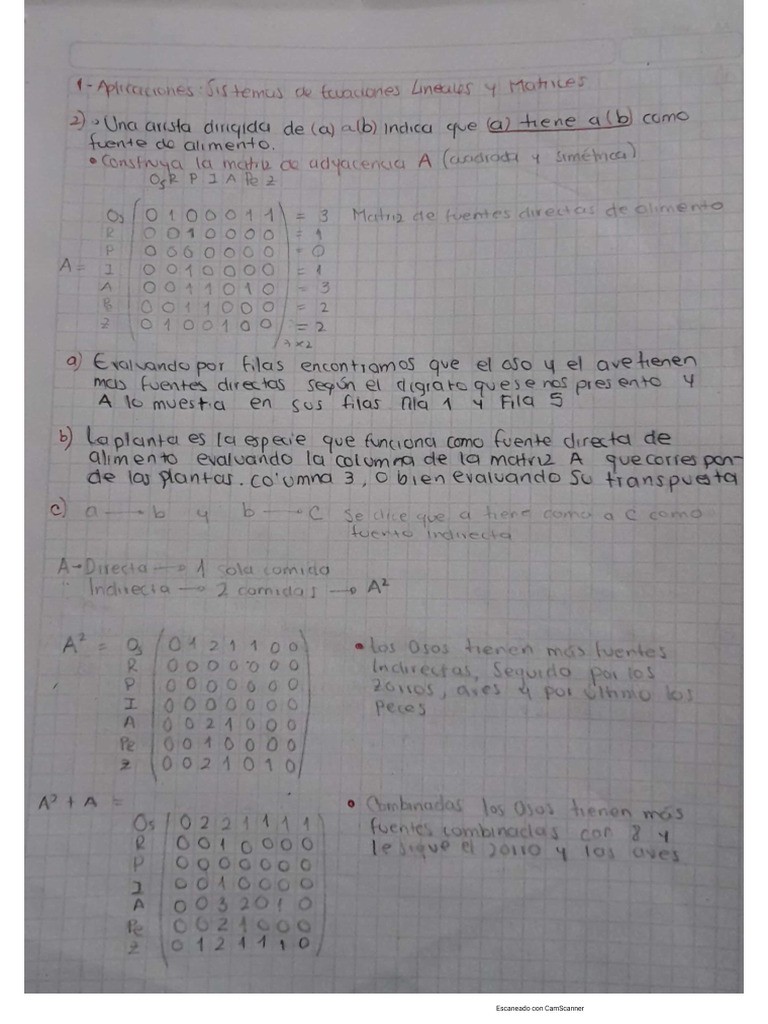 1- Aplicaciones: Sistemas de Ecuaciones Lineales y Matrices
2) • Una arista dirigida de (a) a (b) indica que (a) tiene a (b) como
fuente de alimento.
• Construya la matriz de adyacencia A (cuadrada y simétrica)
Os R P I A Pe Z
Os 0 1 0 0 0 1 1 = 3 Matriz de fuentes directas de alimento
R 0 0 1 0 0 0 0 = 1
P 0 0 0 0 0 0 0 = 0
A = I 0 0 1 0 0 0 0 = 1
A 0 0 1 1 0 1 0 = 3
0 0 1 1 0 0 0 = 2
Z 0 1 0 0 1 0 0 = 2
a) Evaluando por filas encontramos que el oso y el ave tienen
mas fuentes directas según el digrafo que se nos presento y
A lo muestra en sus filas fila 1 y Fila 5
b) La planta es la especie que funciona como fuente directa de
alimento evaluando la columna de la matriz A que correspon-
de las plantas. columna 3, o bien evaluando su transpuesta
c) a → b y b → c Se dice que a tiene como a C como
fuente indirecta
A → Directa → 1 sola comida
Indirecta → 2 comidas → A²
A² = Os 0 1 2 1 1 0 0
R 0 0 0 0 0 0 0
P 0 0 0 0 0 0 0
I 0 0 0 0 0 0 0
A 0 0 2 1 0 0 0
Pe 0 0 1 0 0 0 0
Z 0 0 2 1 0 1 0
• Los Osos tienen más fuentes
Indirectas, Seguido por los
zorros, aves y por último los
peces
A² + A =
Os 0 2 2 1 1 1 1
R 0 0 1 0 0 0 0
P 0 0 0 0 0 0 0
I 0 0 1 0 0 0 0
A 0 0 3 2 0 1 0
Pe 0 0 2 1 0 0 0
Z 0 1 2 1 1 1 0
• Combinadas los Osos tienen más
fuentes combinadas con 8 y
le sigue el zorro y las aves
Escaneado con CamScanner